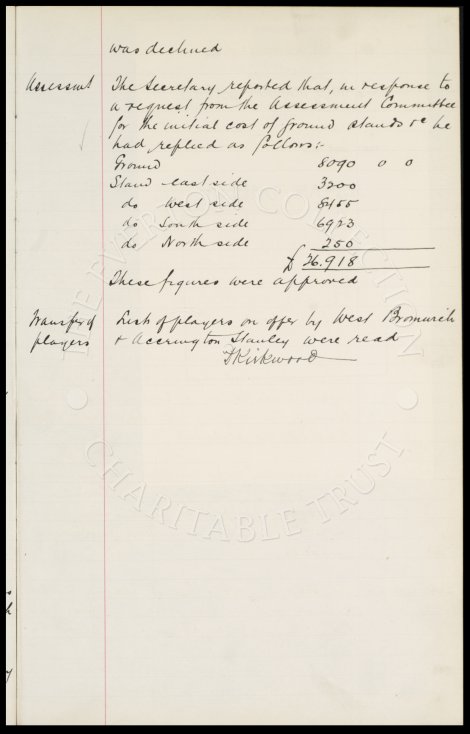 was declined
Assessmt The Secretary reported that, in response to
a request from the Assessment Committee
for the initial cost of ground stands &c he
had replied as follows:-
Ground 8090 0 0
Stand east side 3200
do West side 8455
do South side 6923
do North side 250
£ 26.918
These figures were approved
Transfer of List of players on offer by West Bromwich
players & Accrington Stanley were read
Kirkwood
THE EVERTON COLLECTION
CHARITABLE TRUST